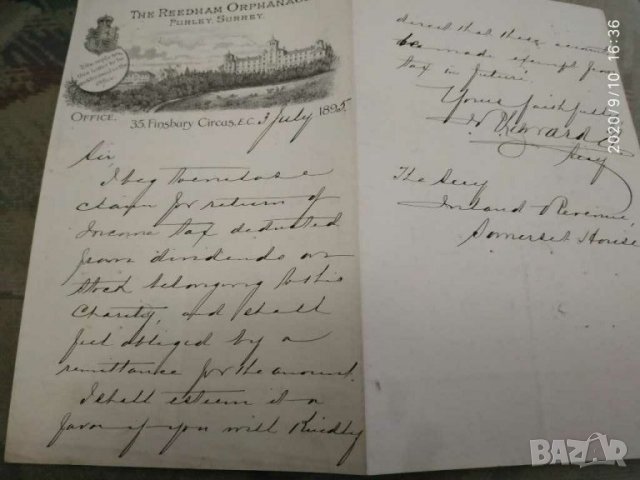 THE REEDHAM ORPHANAGE
PURLEY, SURREY.
OFFICE,
35, Finsbury Circus, E.C. 3 July 1895
Sir
I beg to enclose a
claim for return of
Income tax deducted
from dividends on
stock belonging to this
Charity, and shall
feel obliged by a
remittance for the amount.
I shall esteem it a
favor if you will kindly
direct that these accounts
be made exempt from
tax in future.
Yours faithfully
Secy
The Secy
Inland Revenue,
Somerset House
2020/9/10 16:36
BAZAR